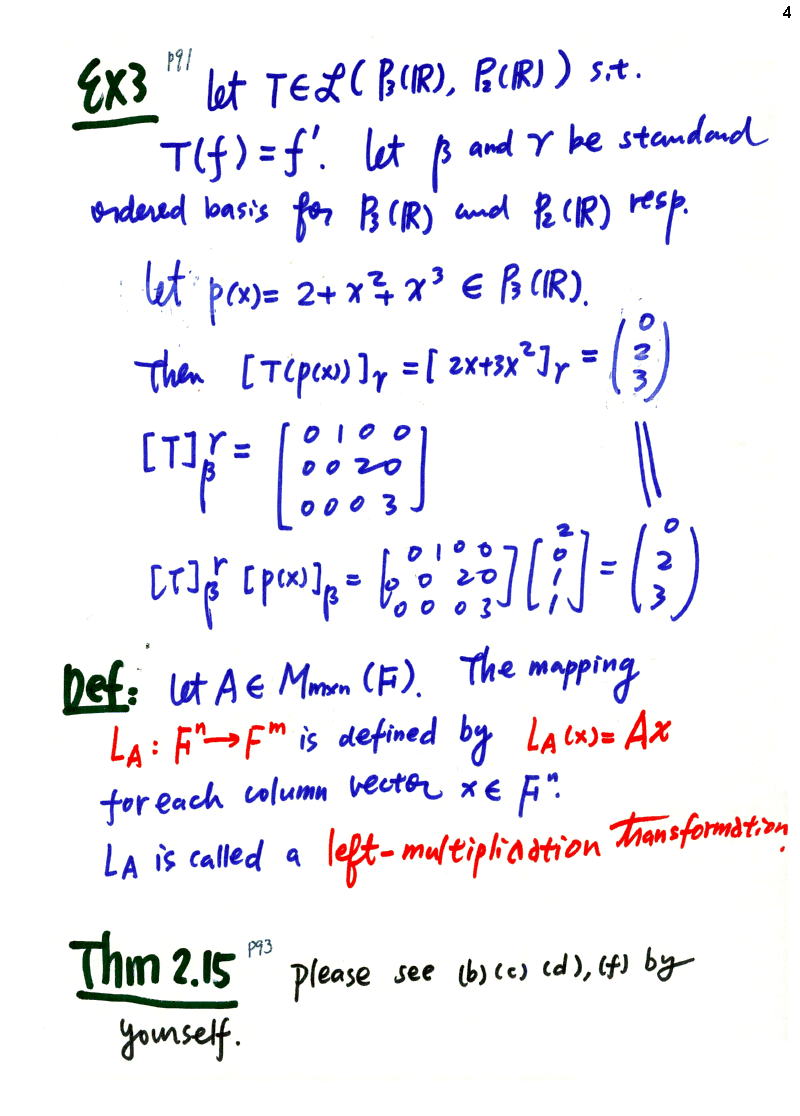 4
Ex3 p91 let T∈ℒ(P₃(ℝ), P₂(ℝ)) s.t.
T(f) = f'. let β and γ be standard
ordered basis for P₃(ℝ) and P₂(ℝ) resp.
let p(x) = 2 + x² + x³ ∈ P₃(ℝ).
Then [T(p(x))]_γ = [2x+3x²]_γ = (0 2 3)
[T]_β^γ = [0 1 0 0
0 0 2 0
0 0 0 3]
||
[T]_β^γ [p(x)]_β = [0 1 0 0
0 0 2 0
0 0 0 3] [2 0 1 1] = (0 2 3)
Def: let A ∈ M_{m×n}(F). The mapping
L_A : Fⁿ → Fᵐ is defined by L_A(x) = Ax
for each column vector x ∈ Fⁿ.
L_A is called a left-multiplication transformation.
Thm 2.15 p93 please see (b) (c) (d), (f) by
yourself.